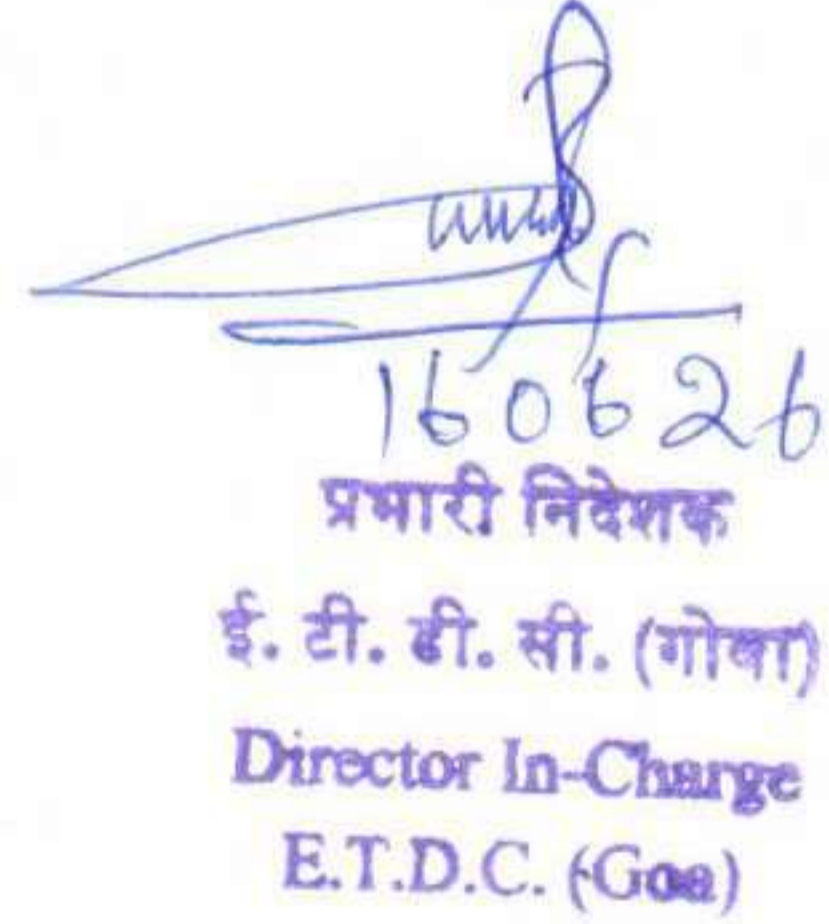 160626
प्रभारी निदेशक
ई. टी. डी. सी. (गोवा)
Director In-Charge
E.T.D.C. (Goa)